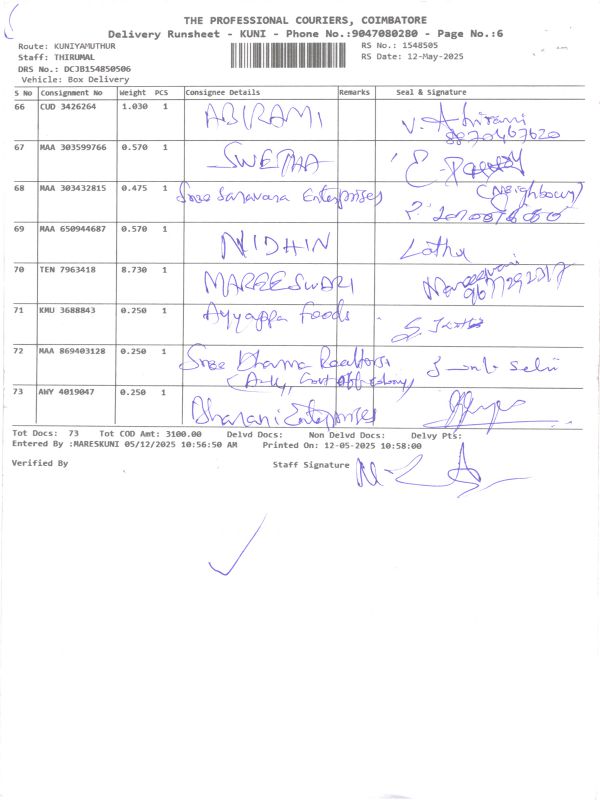 THE PROFESSIONAL COURIERS, COIMBATORE
Delivery Runsheet - KUNI - Phone No.:9047080280 - Page No.:6
Route: KUNIYAMUTHUR RS No.: 1548505
Staff: THIRUMAL RS Date: 12-May-2025
DRS No.: DCJB154850506
Vehicle: Box Delivery
S No Consignment No Weight PCS Consignee Details Remarks Seal & Signature
66 CUD 3426264 1.030 1 ABIRAMI V. Abirami
8870467620
67 MAA 303599766 0.570 1 SWETHA
68 MAA 303432815 0.475 1 Sree Saravana Enterprises (Neighbour)
69 MAA 650944687 0.570 1 NIDHIN Latha
70 TEN 7963418 8.730 1 MAREESWARI
71 KMU 3688843 0.250 1 Ayyappa Foods
72 MAA 869403128 0.250 1 Sree Dharma Realtors
73 AWY 4019047 0.250 1 Bharani Enterprises
Tot Docs: 73 Tot COD Amt: 3100.00 Delvd Docs: Non Delvd Docs: Delvy Pts:
Entered By :MARESKUNI 05/12/2025 10:56:50 AM Printed On: 12-05-2025 10:58:00
Verified By Staff Signature